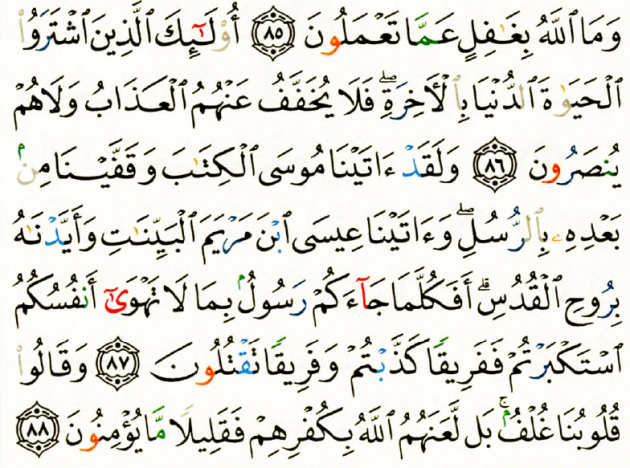 وَمَا ٱللَّهُ بِغَٰفِلٍ عَمَّا تَعْمَلُونَ ٨٥ أُو۟لَٰٓئِكَ ٱلَّذِينَ ٱشْتَرَوُا۟
ٱلْحَيَوٰةَ ٱلدُّنْيَا بِٱلْأَخِرَةِۖ فَلَا يُخَفَّفُ عَنْهُمُ ٱلْعَذَابُ وَلَا هُمْ
يُنصَرُونَ ٨٦ وَلَقَدْ ءَاتَيْنَا مُوسَى ٱلْكِتَٰبَ وَقَفَّيْنَا مِنۢ
بَعْدِهِۦ بِٱلرُّسُلِۖ وَءَاتَيْنَا عِيسَى ٱبْنَ مَرْيَمَ ٱلْبَيِّنَٰتِ وَأَيَّدْنَٰهُ
بِرُوحِ ٱلْقُدُسِۗ أَفَكُلَّمَا جَآءَكُمْ رَسُولٌۢ بِمَا لَا تَهْوَىٰٓ أَنفُسُكُمُ
ٱسْتَكْبَرْتُمْ فَفَرِيقًا كَذَّبْتُمْ وَفَرِيقًا تَقْتُلُونَ ٨٧ وَقَالُوا۟
قُلُوبُنَا غُلْفٌۢۚ بَل لَّعَنَهُمُ ٱللَّهُ بِكُفْرِهِمْ فَقَلِيلًا مَّا يُؤْمِنُونَ ٨٨